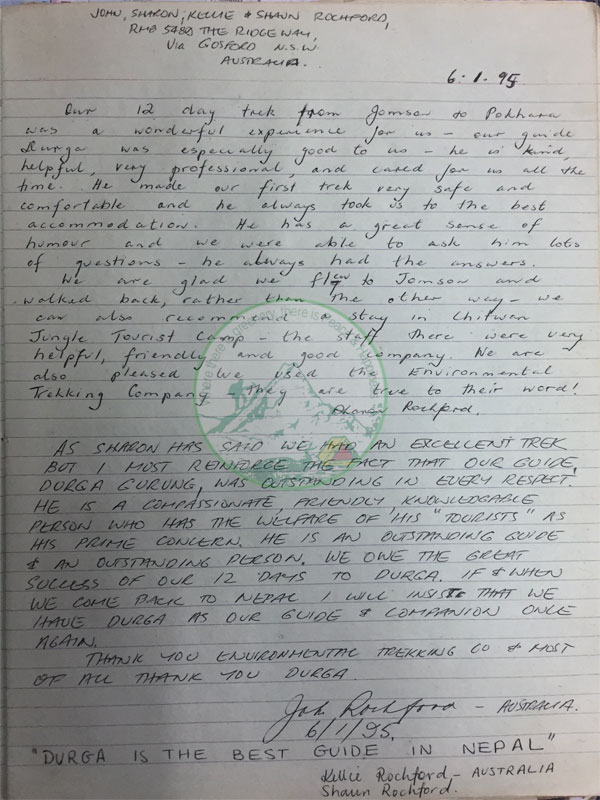 JOHN, SHARON, KELLIE & SHAUN ROCHFORD,
RMB 5480 THE RIDGEWAY,
Via GOSFORD N.S.W.
AUSTRALIA.
6.1.95
Our 12 day trek from Jomson to Pokhara
was a wonderful experience for us - our guide
Durga was especially good to us - he is kind,
helpful, very professional, and cared for us all the
time. He made our first trek very safe and
comfortable and he always took us to the best
accommodation. He has a great sense of
humour and we were able to ask him lots
of questions - he always had the answers.
We are glad we flew to Jomson and
walked back, rather than the other way - we
can also recommend a stay in Chitwan
Jungle Tourist Camp - the staff there were very
helpful, friendly and good company. We are
also pleased we used the Environmental
Trekking Company they are true to their word!
Sharon Rochford.
AS SHARON HAS SAID WE HAD AN EXCELLENT TREK
BUT I MUST REINFORCE THE FACT THAT OUR GUIDE,
DURGA GURUNG, WAS OUTSTANDING IN EVERY RESPECT.
HE IS A COMPASSIONATE, FRIENDLY, KNOWLEDGABLE
PERSON WHO HAS THE WELFARE OF HIS "TOURISTS" AS
HIS PRIME CONCERN. HE IS AN OUTSTANDING GUIDE
& AN OUTSTANDING PERSON. WE OWE THE GREAT
SUCCESS OF OUR 12 DAYS TO DURGA. IF & WHEN
WE COME BACK TO NEPAL I WILL INSIST THAT WE
HAVE DURGA AS OUR GUIDE & COMPANION ONCE
AGAIN.
THANK YOU ENVIRONMENTAL TREKKING CO & MOST
OF ALL THANK YOU DURGA.
John Rochford - AUSTRALIA.
6/1/95.
"DURGA IS THE BEST GUIDE IN NEPAL"
Kellie Rochford - AUSTRALIA
Shaun Rochford.
where there is greenery, there is peace